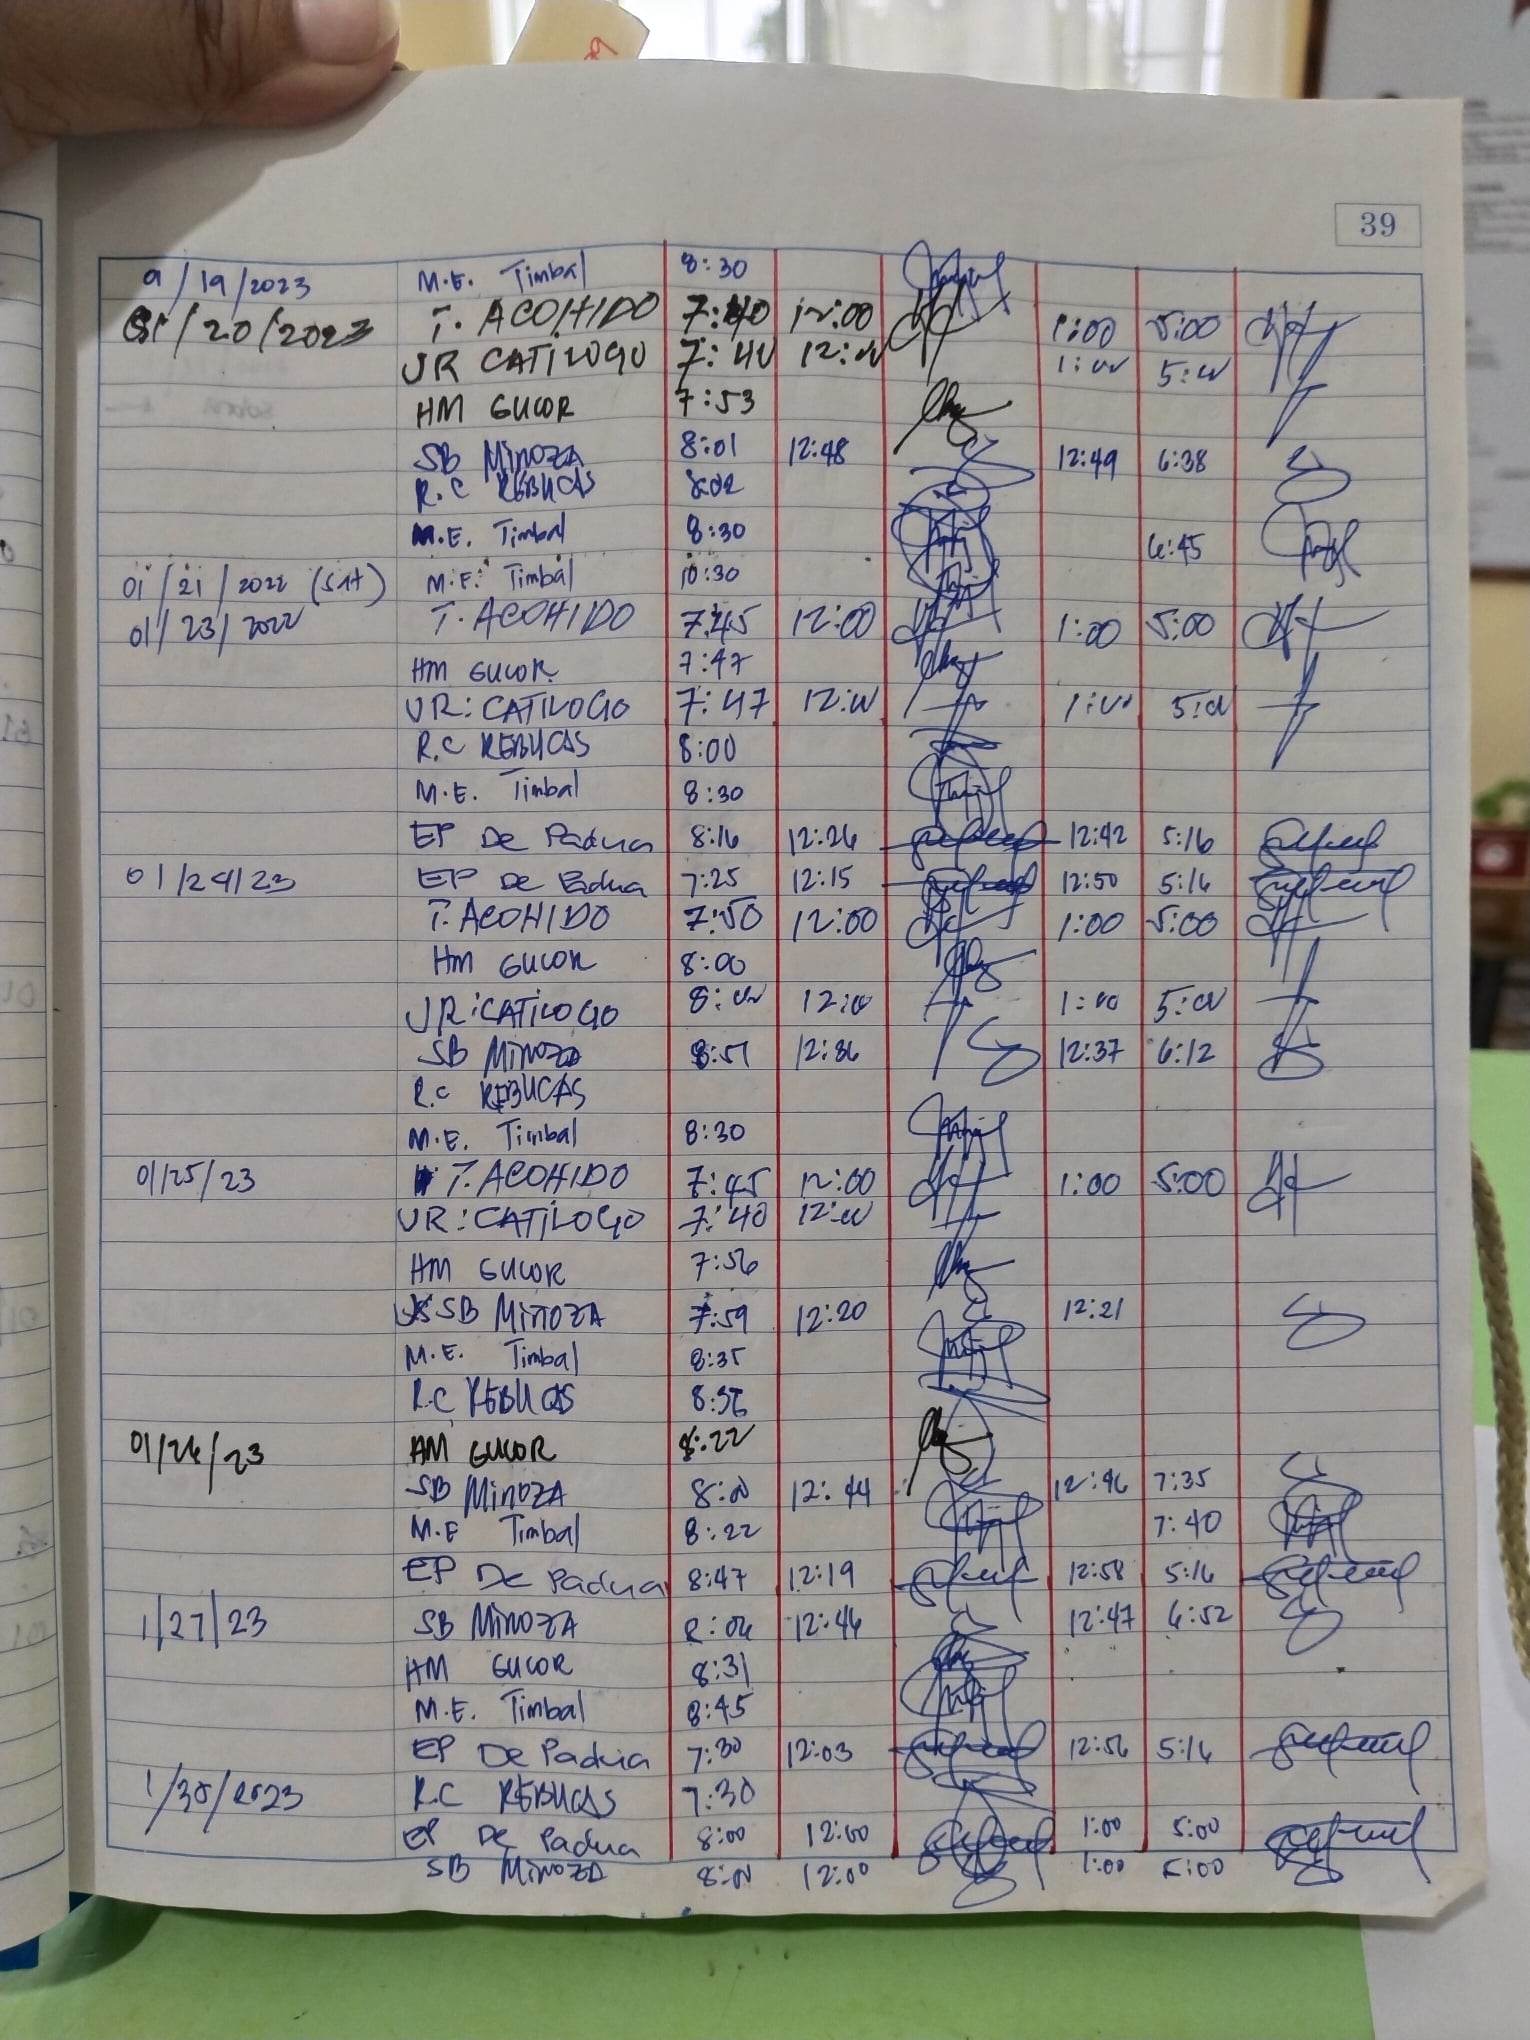 39
9/19/2023 M.E. Timbal 8:30
01/20/2023 T. ACOHIDO 7:40 12:00 1:00 5:00
JR CATILOGO 7:40 12:00 1:00 5:00
HM GUCOR 7:53
SB MINOZA 8:01 12:48 12:49 6:38
R.C REBUCAS 8:02
M.E. Timbal 8:30 6:45
01/21/2022 (SAT) M.E. Timbal 10:30
01/23/2022 T. ACOHIDO 7:45 12:00 1:00 5:00
HM GUCOR 7:47
JR: CATILOGO 7:47 12:00 1:00 5:00
R.C REBUCAS 8:00
M.E. Timbal 8:30
EP De Padua 8:16 12:26 12:42 5:16
01/24/23 EP De Padua 7:25 12:15 12:50 5:16
T. ACOHIDO 7:50 12:00 1:00 5:00
HM GUCOR 8:00
JR: CATILOGO 8:00 12:00 1:00 5:00
SB MINOZA 8:51 12:36 12:37 6:12
R.C REBUCAS
M.E. Timbal 8:30
01/25/23 T. ACOHIDO 7:45 12:00 1:00 5:00
JR: CATILOGO 7:40 12:00
HM GUCOR 7:56
SB MINOZA 7:59 12:20 12:21
M.E. Timbal 8:35
R.C REBUCAS 8:36
01/26/23 HM GUCOR 8:22
SB MINOZA 8:00 12:44 12:46 7:35
M.E Timbal 8:22 7:40
EP De Padua 8:47 12:19 12:58 5:16
1/27/23 SB MINOZA 8:06 12:46 12:47 6:52
HM GUCOR 8:31
M.E. Timbal 8:45
EP De Padua 7:30 12:03 12:56 5:16
1/30/2023 R.C REBUCAS 7:30
EP De Padua 8:00 12:00 1:00 5:00
SB MINOZA 8:00 12:00 1:00 5:00